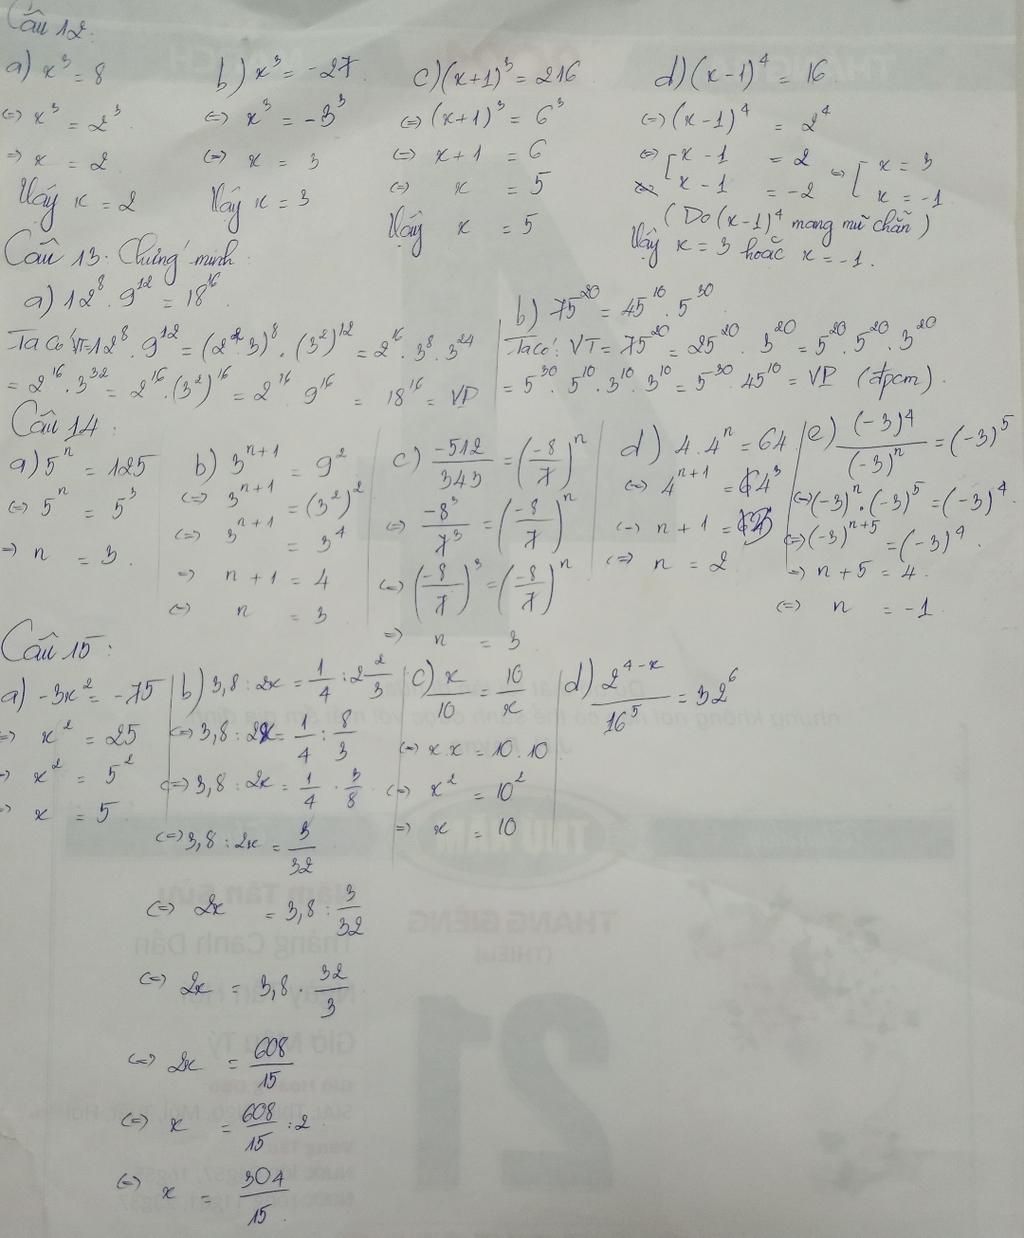 Câu 12:
a) x³ = 8
⇔ x³ = 2³
⇒ x = 2
Vậy x = 2
b) x³ = -27
⇔ x³ = -3³
⇔ x = 3
Vậy x = 3
c) (x+1)³ = 216
⇔ (x+1)³ = 6³
⇔ x+1 = 6
⇔ x = 5
Vậy x = 5
d) (x-1)⁴ = 16
⇔ (x-1)⁴ = 2⁴
⇔ [x-1 = 2 ⇔ [x = 3
x-1 = -2 x = -1
(Do (x-1)⁴ mang mũ chẵn)
Vậy x = 3 hoặc x = -1.
Câu 13. Chứng minh:
a) 12⁸. 9¹² = 18¹⁶.
Ta có: VT = 12⁸. 9¹² = (2².3)⁸. (3²)¹² = 2¹⁶. 3⁸. 3²⁴
= 2¹⁶. 3³² = 2¹⁶. (3²)¹⁶ = 2¹⁶. 9¹⁶ = 18¹⁶ = VP
b) 75²⁰ = 45¹⁰. 5³⁰
Ta có: VT = 75²⁰ = 25²⁰. 3²⁰ = 5²⁰. 5²⁰. 3²⁰
= 5³⁰. 5¹⁰. 3¹⁰. 3¹⁰ = 5³⁰. 45¹⁰ = VP (đpcm).
Câu 14:
a) 5ⁿ = 125
⇔ 5ⁿ = 5³
⇒ n = 3.
b) 3ⁿ⁺¹ = 9²
⇔ 3ⁿ⁺¹ = (3²)²
⇔ 3ⁿ⁺¹ = 3⁴
⇒ n+1 = 4
⇔ n = 3
c) -512/343 = (-8/7)ⁿ
⇔ -8³/7³ = (-8/7)ⁿ
⇔ (-8/7)³ = (-8/7)ⁿ
⇒ n = 3
d) 4.4ⁿ = 64
⇔ 4ⁿ⁺¹ = 4³
⇔ n+1 = 3
⇔ n = 2
e) (-3)⁴/(-3)ⁿ = (-3)⁵
⇔ (-3)ⁿ. (-3)⁵ = (-3)⁴.
⇔ (-3)ⁿ⁺⁵ = (-3)⁴.
⇒ n+5 = 4.
⇔ n = -1
Câu 15:
a) -3x² = -75
⇒ x² = 25
⇒ x² = 5²
⇒ x = 5
b) 3,8 : 2x = 1/4 : 2 2/3
⇔ 3,8 : 2x = 1/4 : 8/3
⇔ 3,8 : 2x = 1/4 . 3/8
⇔ 3,8 : 2x = 3/32
⇔ 2x = 3,8 : 3/32
⇔ 2x = 3,8 . 32/3
⇔ 2x = 608/15
⇔ x = 608/15 : 2
⇔ x = 304/15.
c) x/10 = 10/x
⇔ x.x = 10.10
⇔ x² = 10²
⇒ x = 10
d) 2⁴⁻ˣ/16⁵ = 32⁶
THỨ NĂM
THÁNG GIÊNG
(THIẾU)
21
Năm Tân Sửu
Tháng Canh Dần